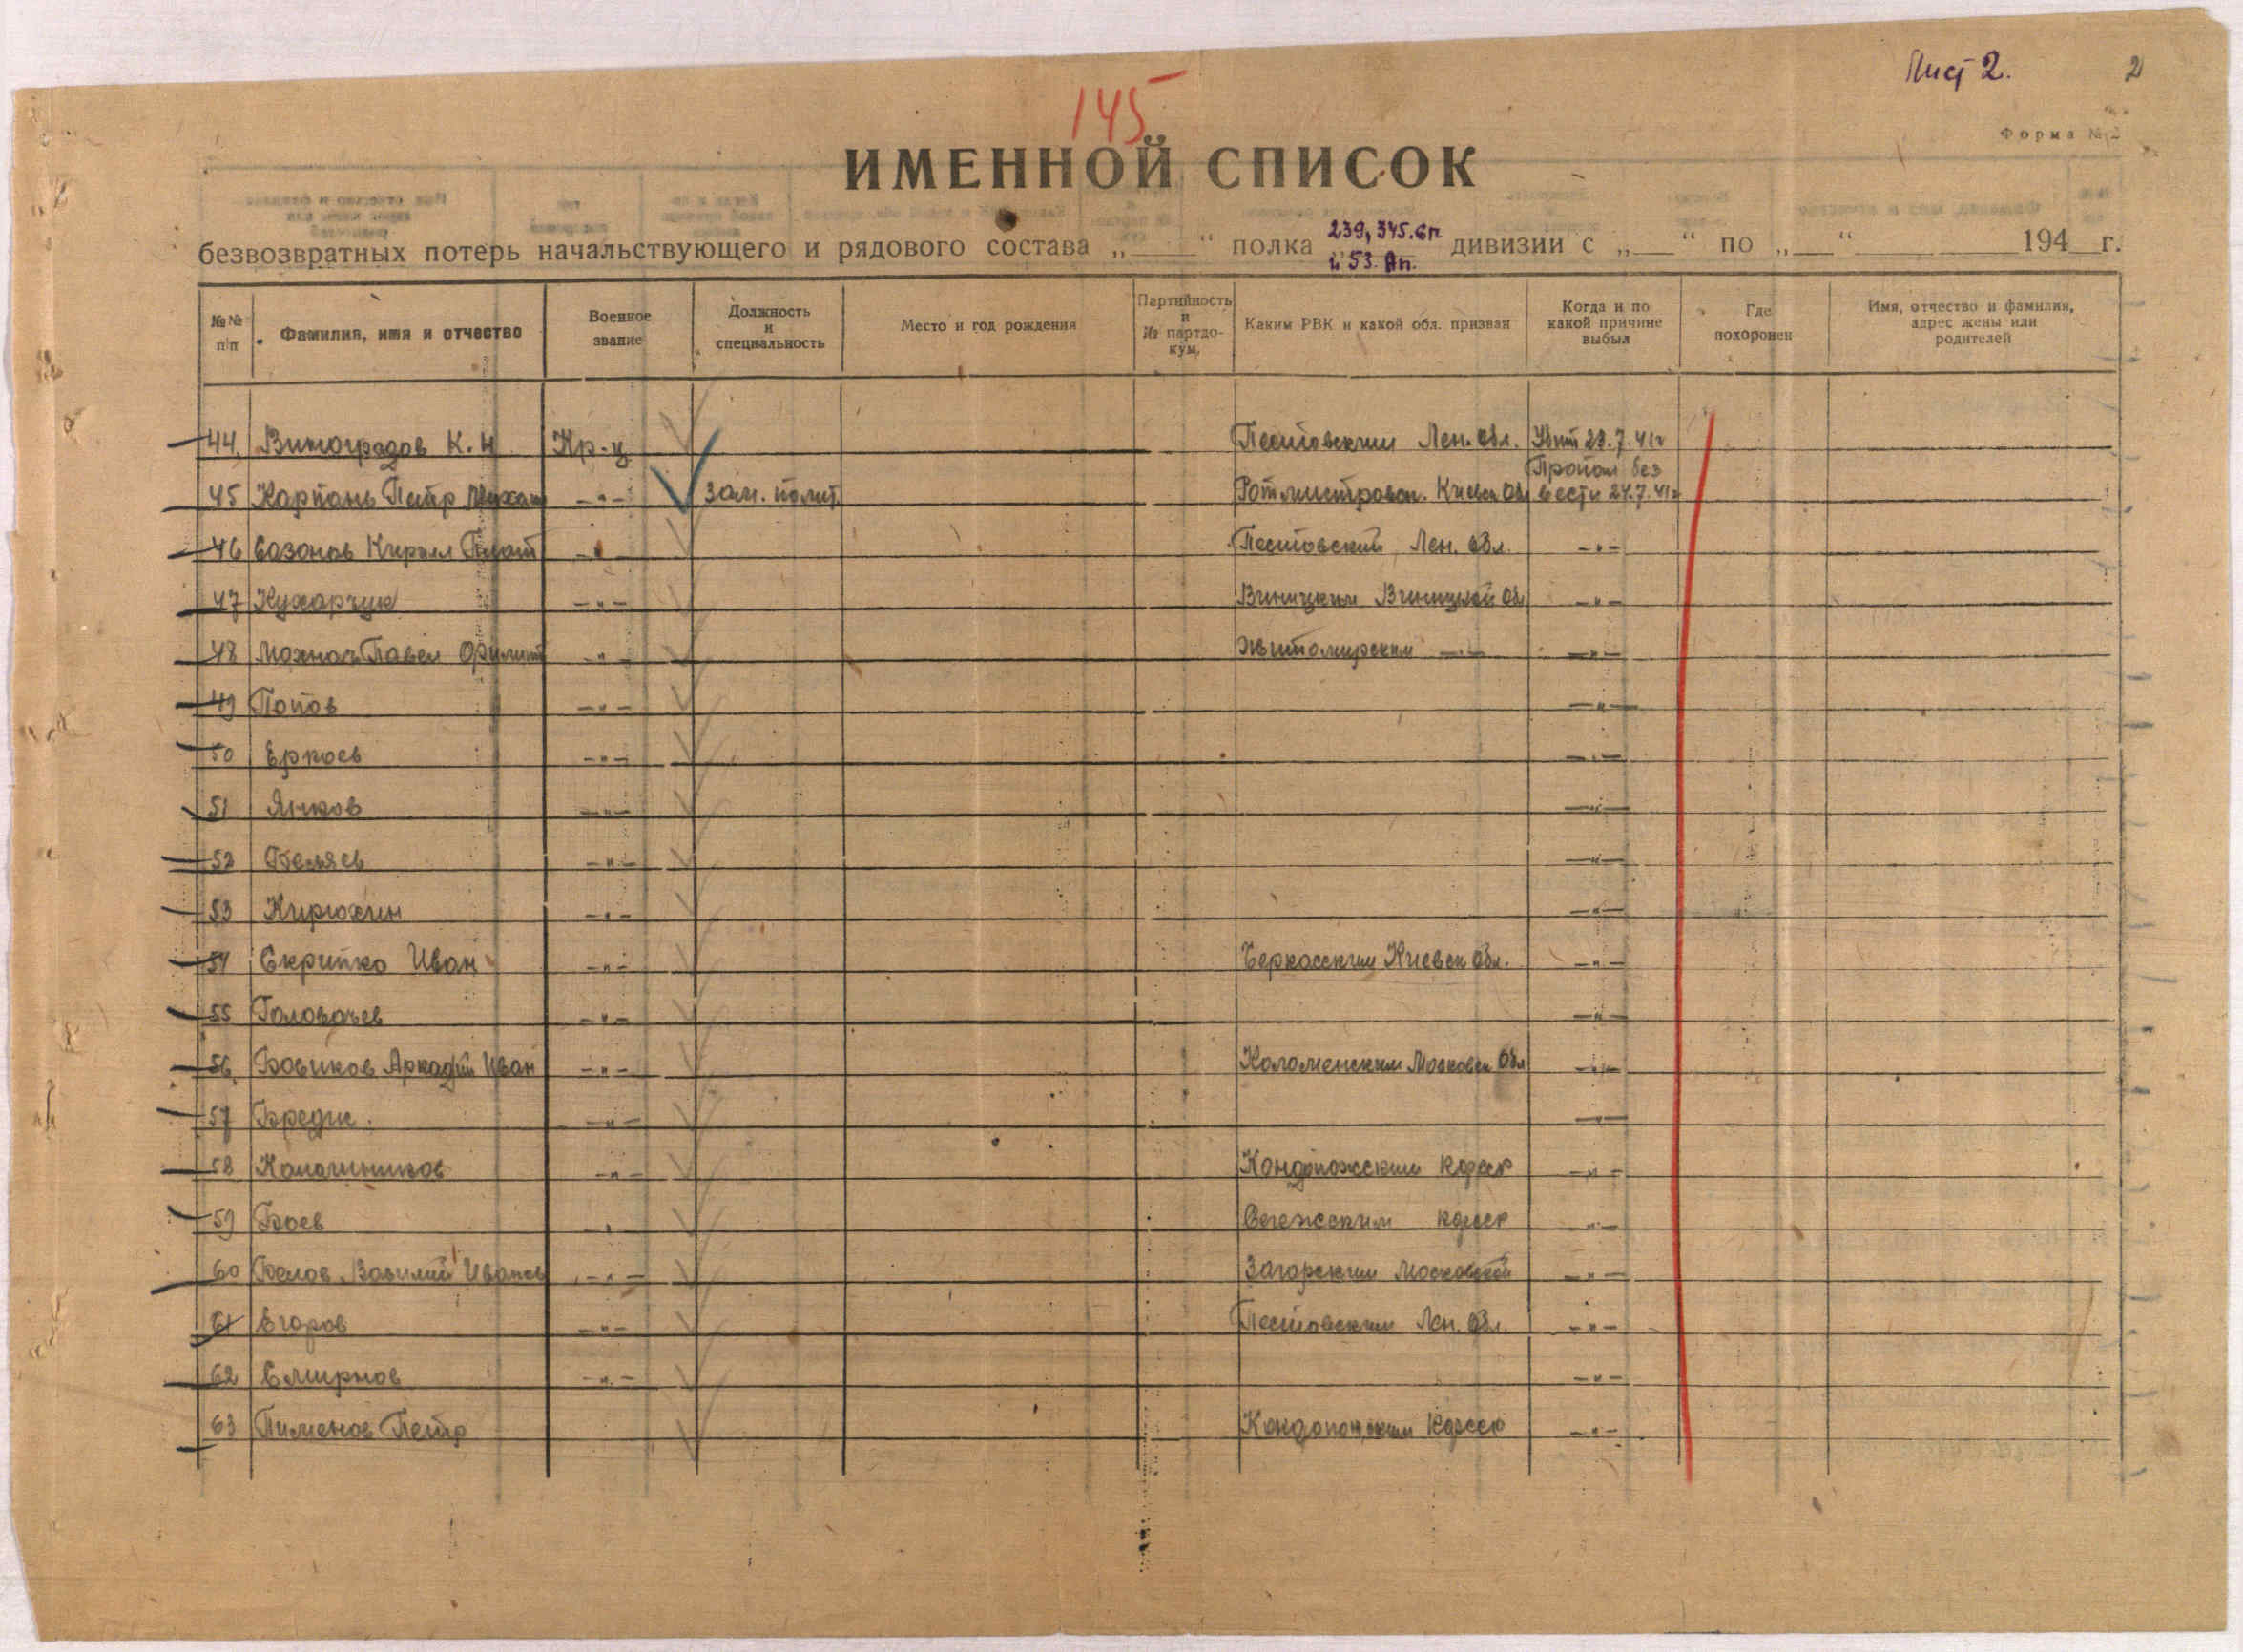 Лист 2.
2
145
Форма № 2
ИМЕННОЙ СПИСОК
безвозвратных потерь начальствующего и рядового состава „ “ полка 239, 345. сп и 53. Ап. дивизии с „ “ по „ “ 194 г.
№№ п/п Фамилия, имя и отчество Военное звание Должность и специальность Место и год рождения Партийность и № партдокум. Каким РВК и какой обл. призван Когда и по какой причине выбыл Где похоронен Имя, отчество и фамилия, адрес жены или родителей
44 Виноградов К. И Кр-ц Пестовским Лен. обл. Убит 23.7.41г
45 Карпань Петр Михаил —"— Зам. полит. Ротмистровск. Киевск Обл Пропал без вести 24.7.41г
46 Сазонов Кирилл Плат — Пестовский Лен. обл. —"—
47 Кухарчук —"— Виницким Виницкой Обл —"—
48 Мохнач Павел Филип —"— Житомирским —"— —"—
49 Попов —"— —"—
50 Еркоев —"— —"—
51 Янков —"— —"—
52 Беляев —"— —"—
53 Кирюхин —"— —"—
54 Скрипко Иван —"— Черкасским Киевск Обл. —"—
55 Головачев —"— —"—
56 Бовиков Аркадий Иван —"— Коломенским Московск Обл —"—
57 Бредис. —"— —"—
58 Калашников —"— Кондопожским Кфсср —"—
59 Боев " Сегежским кфсср —"—
60 Белов Василий Иванов —"— Загорским Московской —"—
61 Егоров —"— Пестовским Лен. Обл. —"—
62 Смирнов —"— —"—
63 Пименов Петр Кондопожским Кфсср —"—